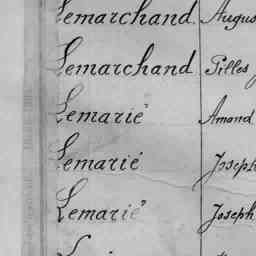 Lemarchand Augus
Lemarchand Gilles
Lemarié Amand
Lemarié Joseph
Lemarié Joseph